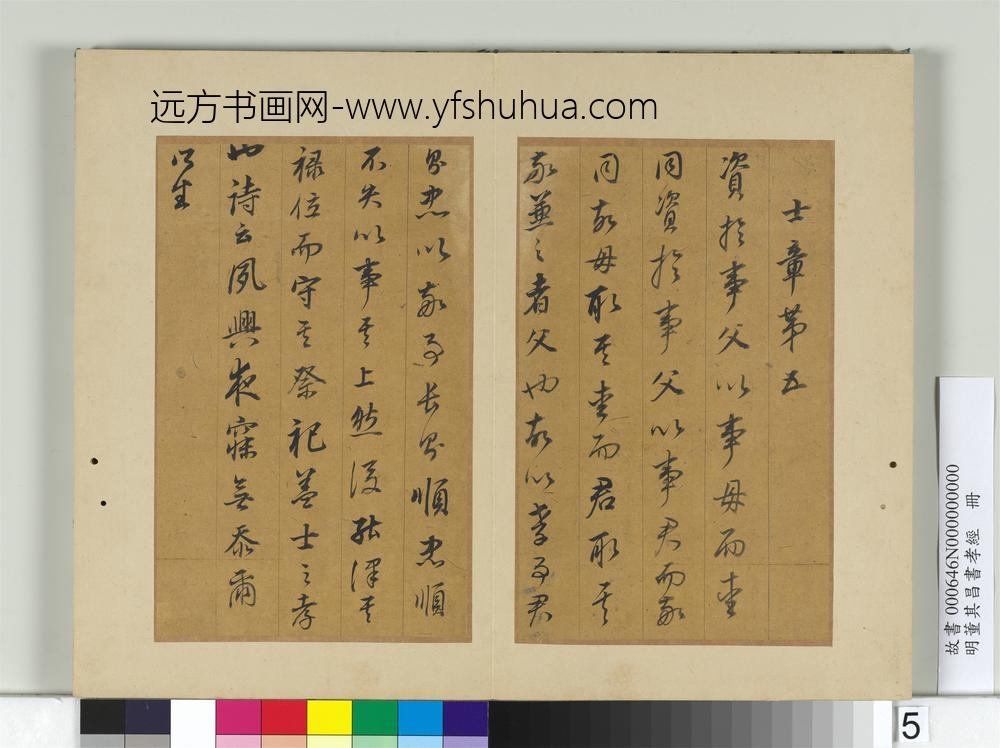 远方书画网-www.yfshuhua.com
士章第五
資於事父以事母而愛
同資於事父以事君而敬
同故母取其愛而君取其
敬兼之者父也故以孝事君
則忠以敬事長則順忠順
不失以事其上然後能保其
禄位而守其祭祀蓋士之孝
也詩云夙興夜寐無忝爾
所生
故書 000646N000000000
明董其昌書孝經 冊
5